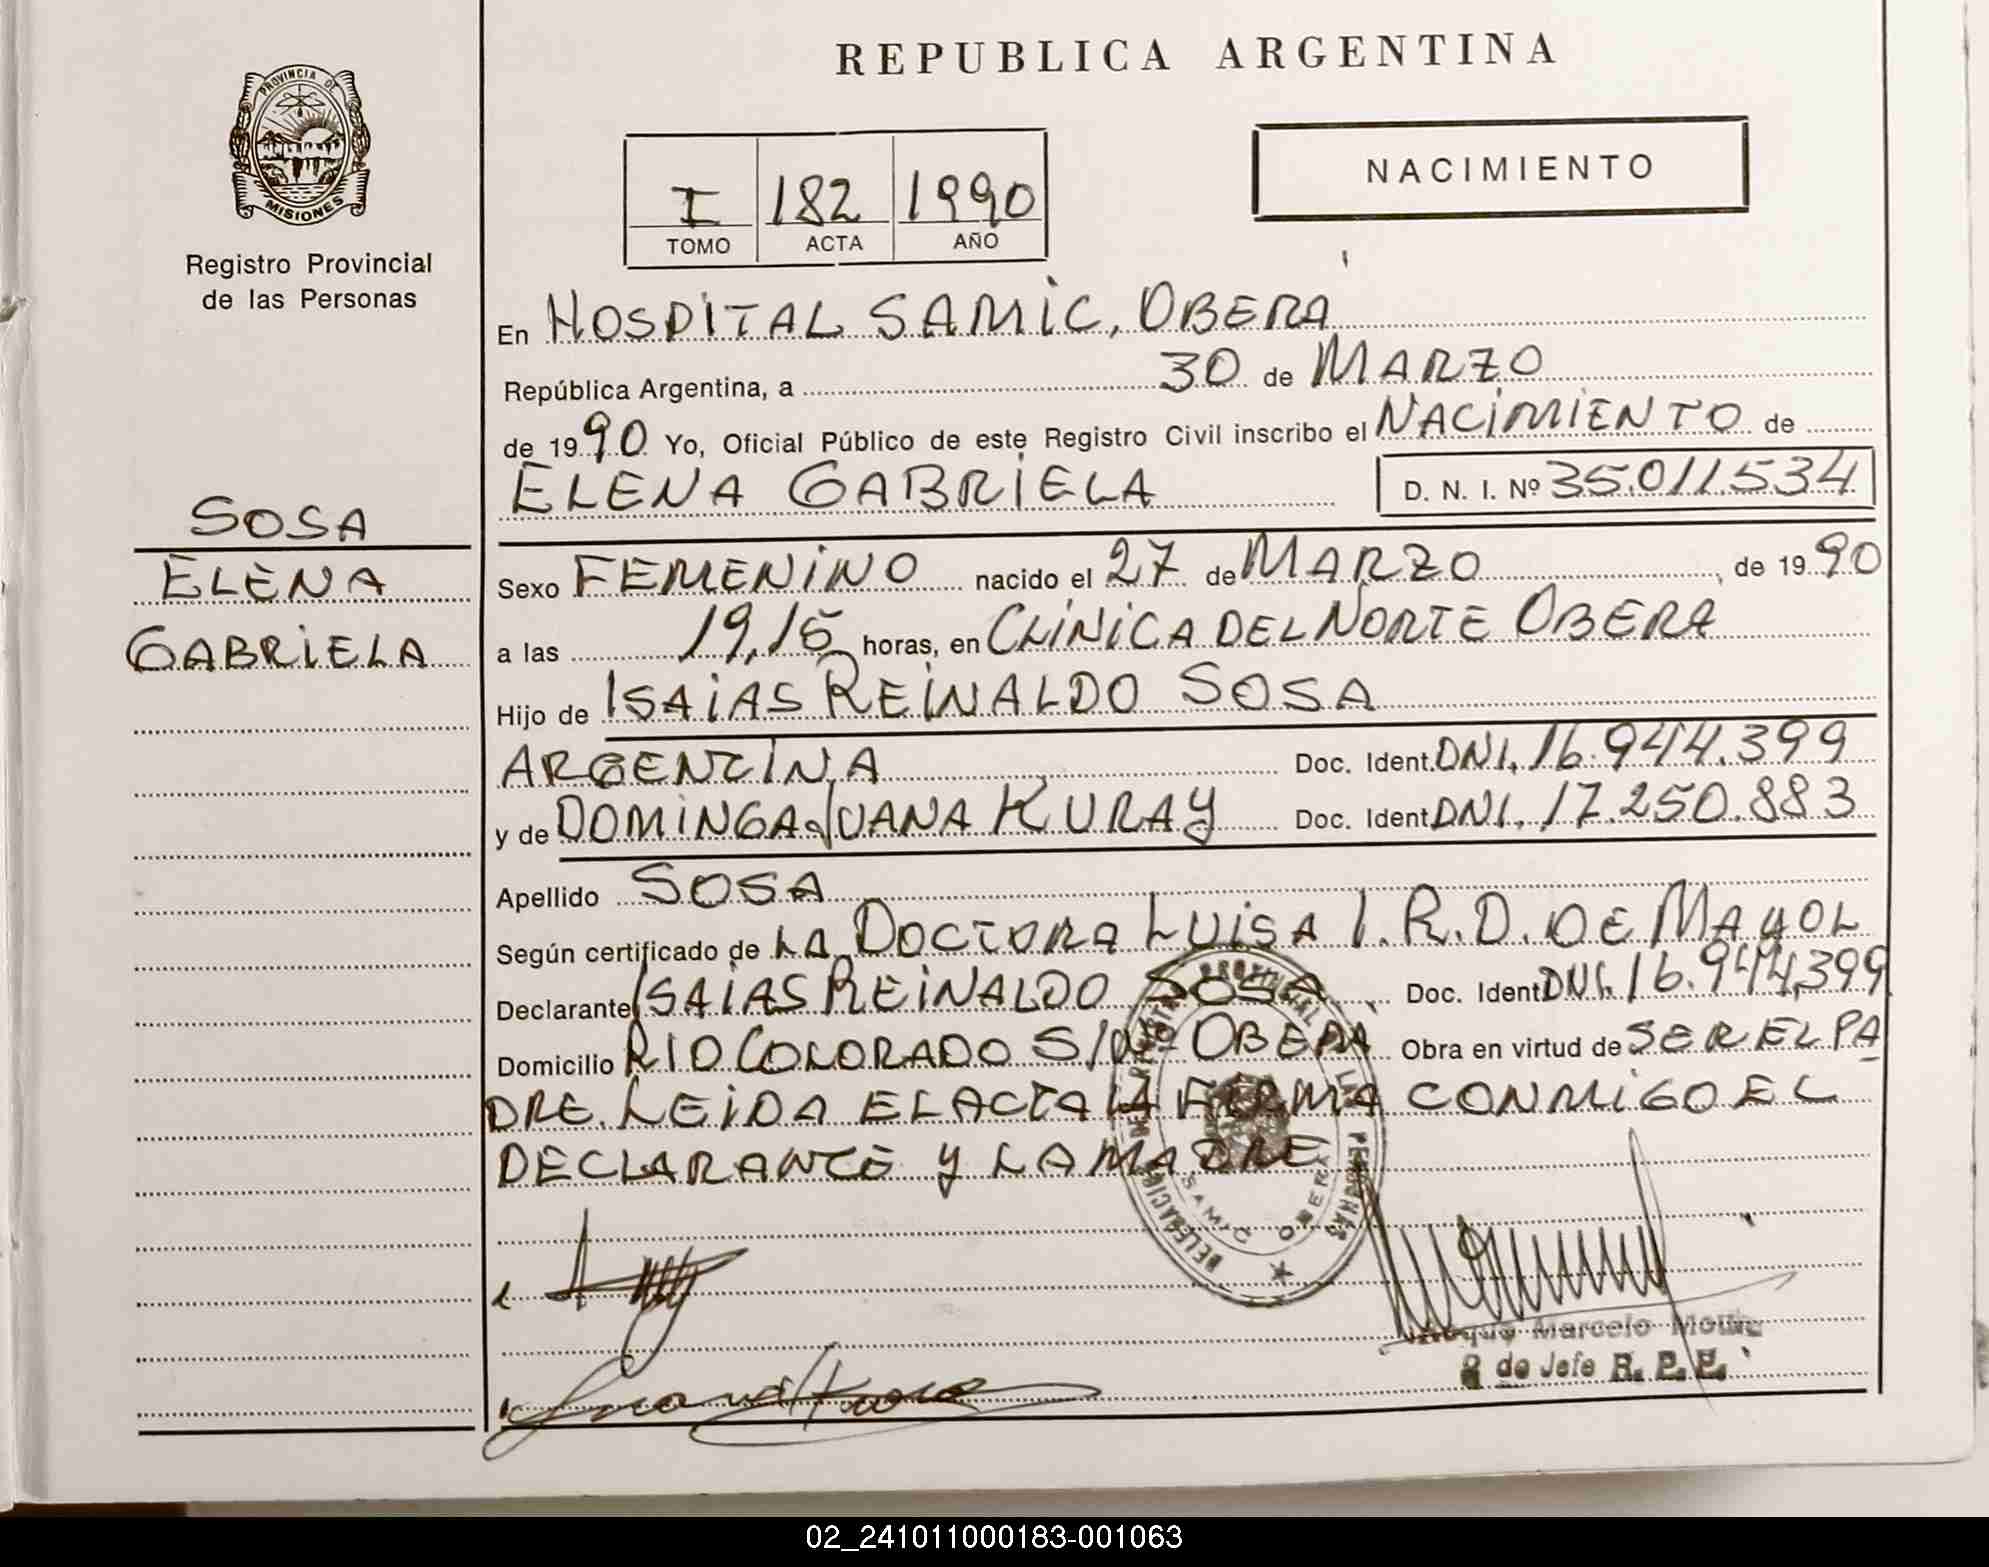 REPUBLICA ARGENTINA
PROVINCIA DE
MISIONES
Registro Provincial
de las Personas
NACIMIENTO
I 182 1990
TOMO ACTA AÑO
En HOSPITAL SAMIC, OBERA
República Argentina, a 30 de MARZO
de 1990 Yo, Oficial Público de este Registro Civil inscribo el NACIMIENTO de
ELENA GABRIELA D. N. I. Nº 35.011.534
SOSA
ELENA
GABRIELA
Sexo FEMENINO nacido el 27 de MARZO, de 1990
a las 19,15 horas, en CLINICA DEL NORTE OBERA
Hijo de ISAIAS REINALDO SOSA
ARGENTINA Doc. Ident. DNI. 16.944.399
y de DOMINGA JUANA KURAY Doc. Ident DNI. 17.250.883
Apellido SOSA
Según certificado de LA DOCTORA LUISA I. R. D. DE MAYOL
Declarante ISAIAS REINALDO SOSA Doc. Ident DNI. 16.944,399
Domicilio RIO COLORADO S/Nº OBERA Obra en virtud de SER EL PA
DRE. LEIDA EL ACTA LA FIRMA CONMIGO EL
DECLARANTE Y LA MADRE
DELEGACION DE REGISTRO PROVINCIAL DE LAS PERSONAS
SAMIC OBERA
Roque Marcelo
de Jefe R. P. P.
02_241011000183-001063